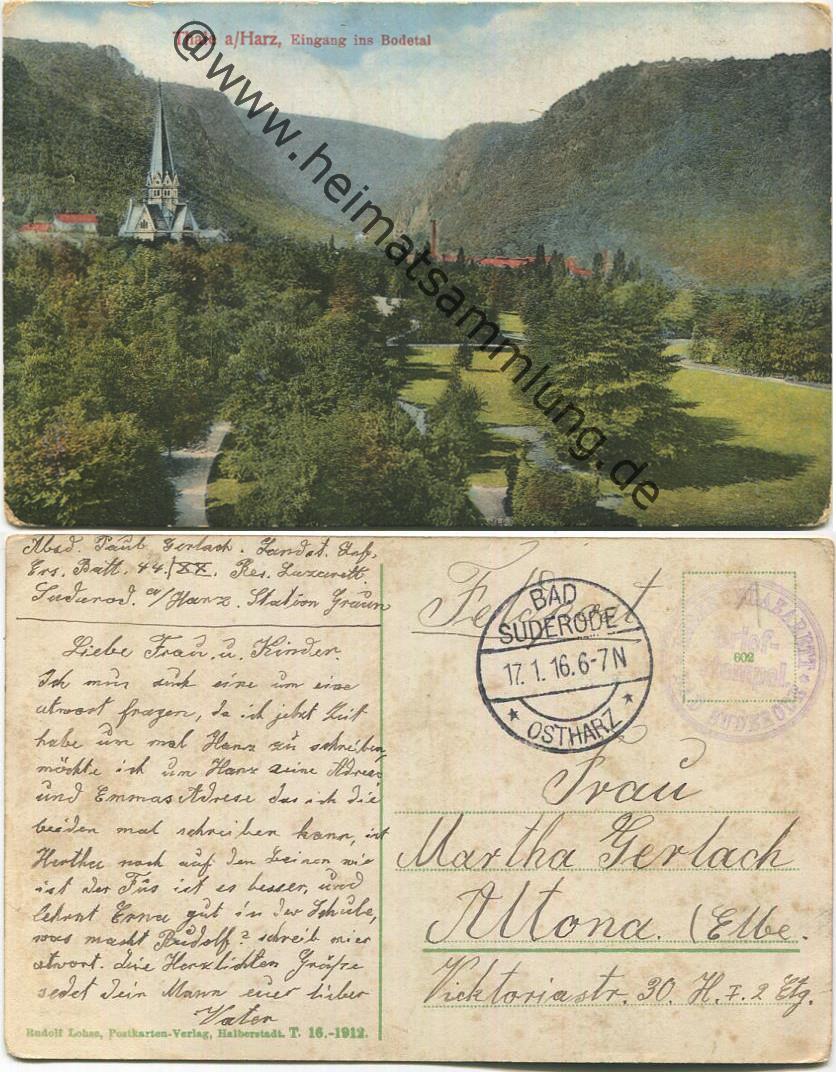 Thale a/Harz, Eingang ins Bodetal
@www.heimatsammlung.de
Absd. Paul Gerlach. Landst. Inf.
Ers. Batt. 44. XX. Res. Lazarett.
Suderod. a/Harz. Station Graun
Liebe Frau. u. Kinder.
Ich mus euch eine um eine
atwort fragen, da ich jetzt Zeit
habe un mal Hanz zu schreiben,
möchte ich um Hanz seine Adrese
und Emmas Adrese das ich die
beiden mal schreiben kann, ist
Hertha noch auf den Beinen wie
ist der Füs ist es besser, und
lehrnt Erna gut in der Schule,
was macht Rudolf? schreib mier
atwort. die Herzlichten Grüße
sedet dein Mann euer lieber
Vater
Rudolf Lohse, Postkarten-Verlag, Halberstadt. T. 16.-1912.
Feldpost
BAD
SUDERODE
17.1.16.6-7N
* OSTHARZ *
LAZARETT
Brief-
stempel
SUDERODE
602
Frau
Martha Gerlach
Altona. (Elbe.
Vicktoriastr. 30. H. I. 2 Etg.